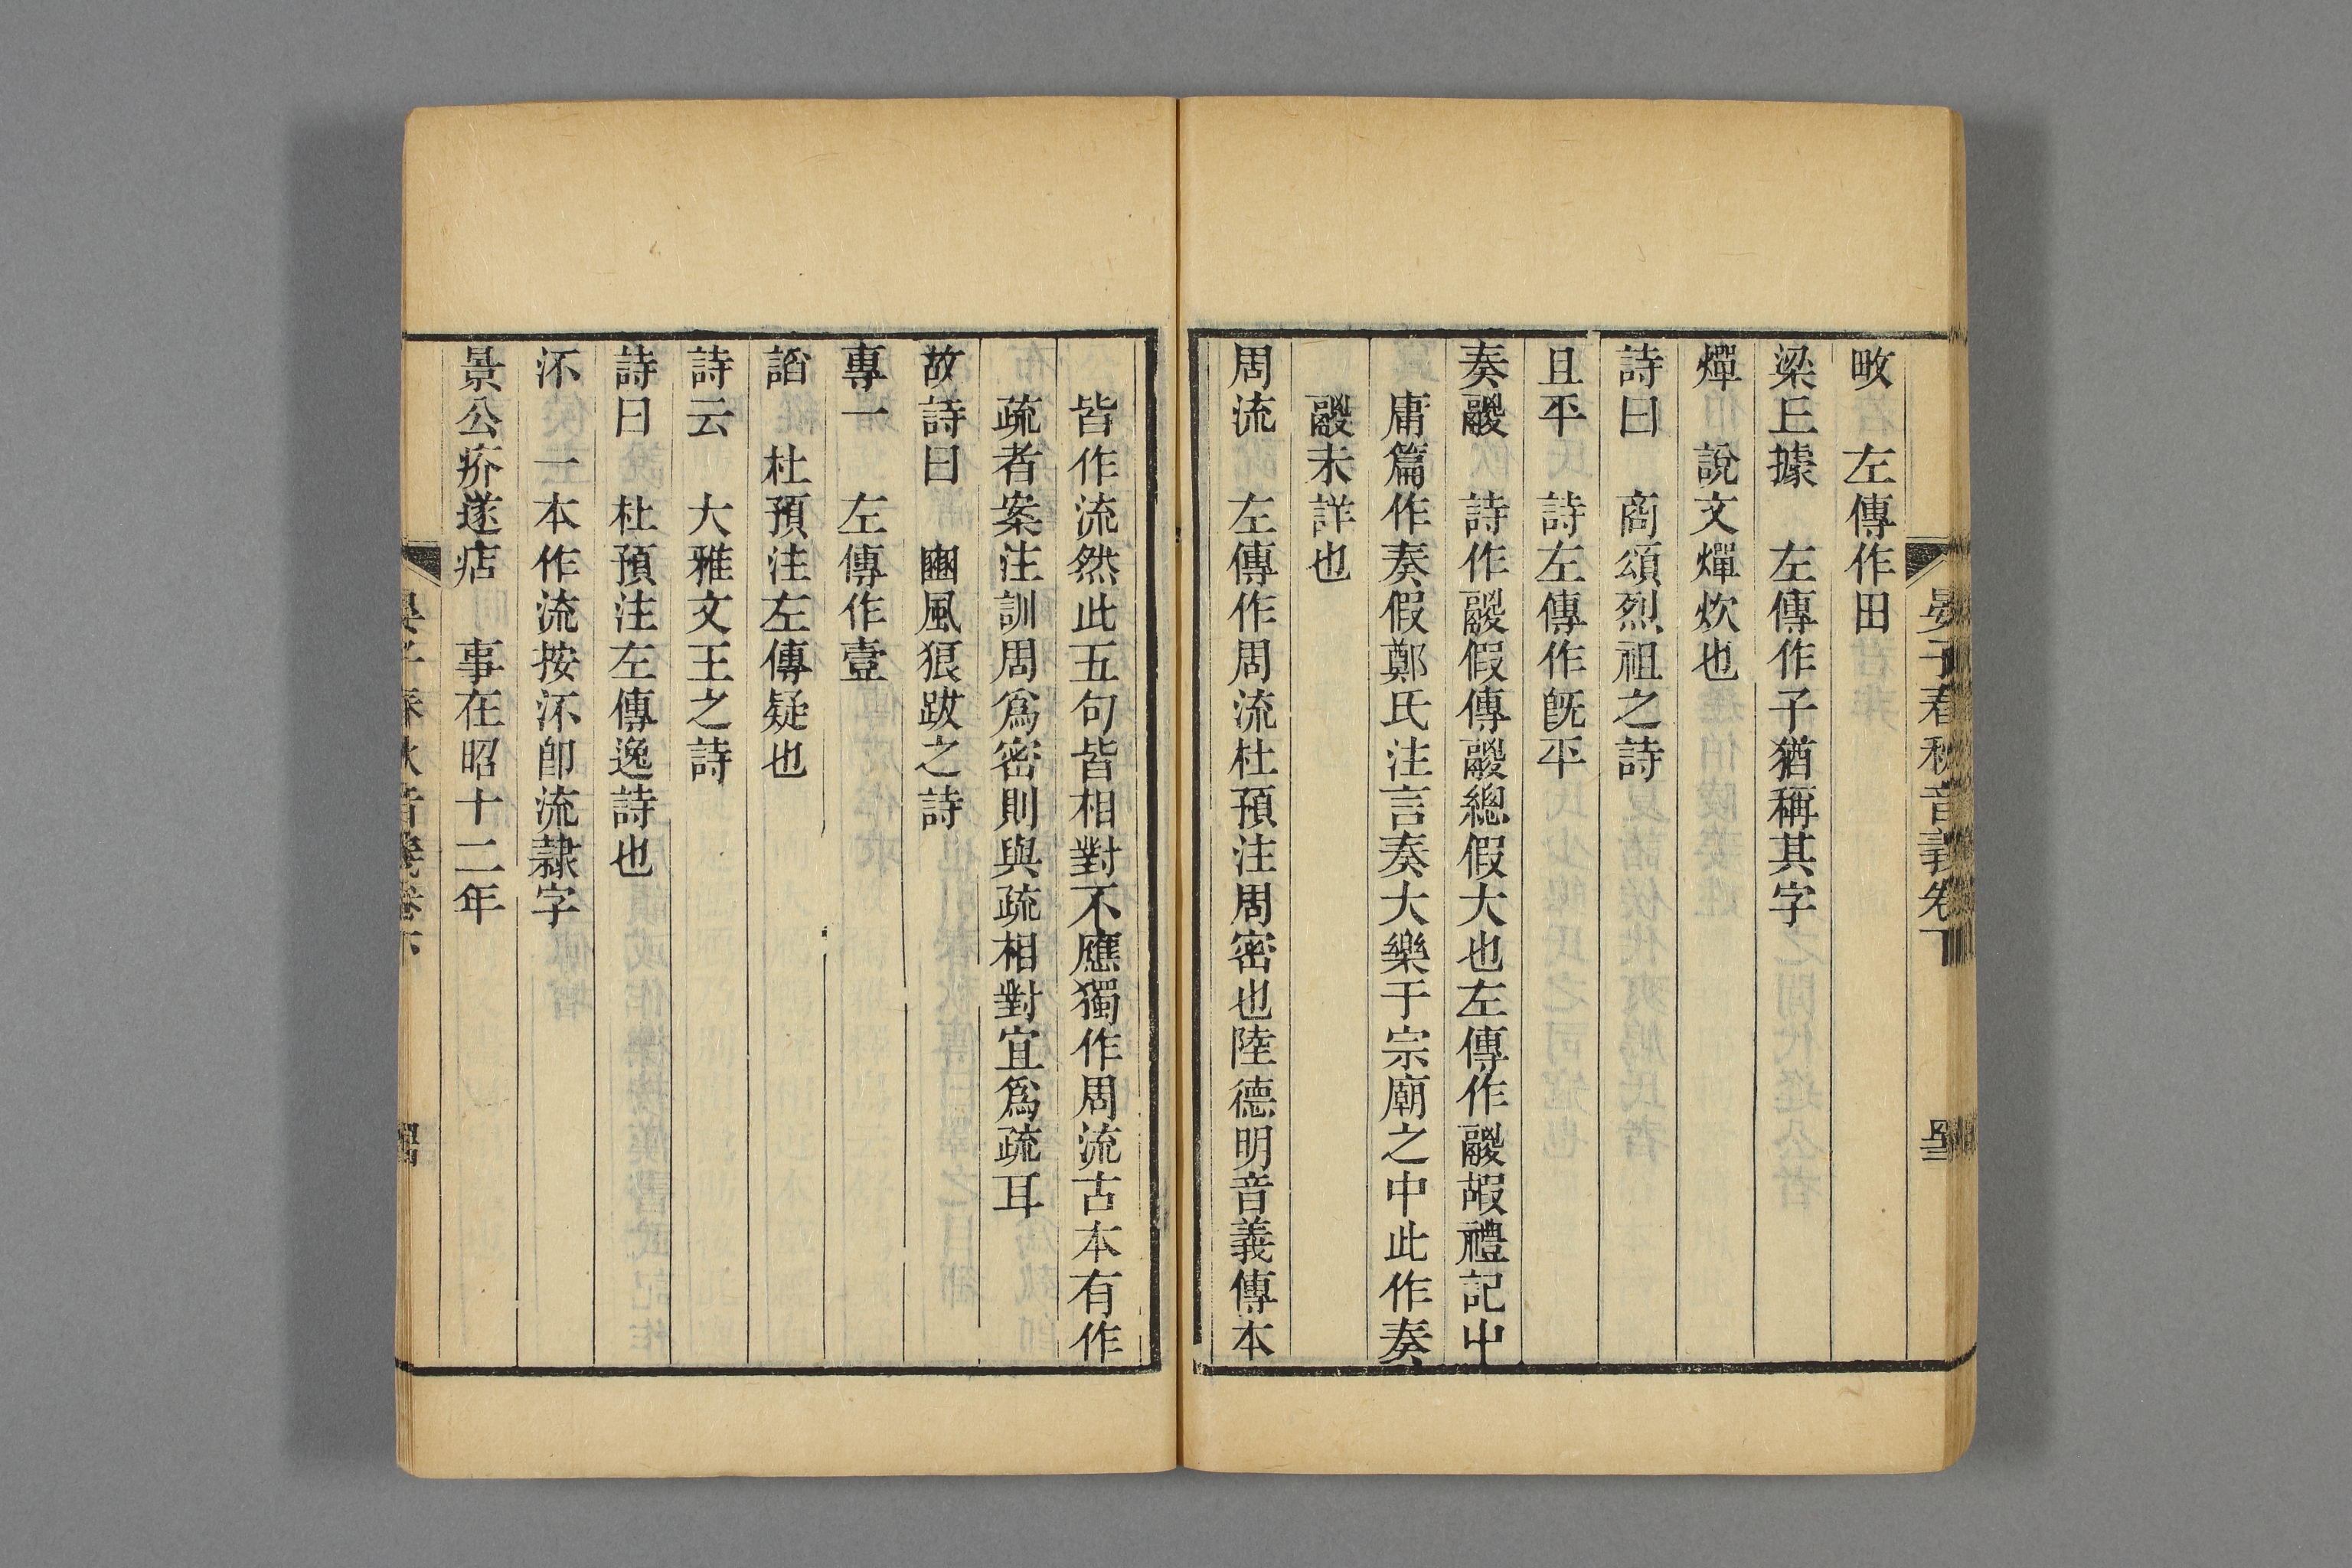 晏子春秋音義卷下
畋　左傳作田
梁㐀據　左傳作子猶稱其字
燀　說文燀炊也
詩曰　商頌烈祖之詩
且平　詩左傳作旣平
奏鬷　詩作鬷假傳鬷總假大也左傳作鬷嘏禮記中
庸篇作奏假鄭氏注言奏大樂于宗廟之中此作奏
鬷未詳也
周流　左傳作周流杜預注周密也陸德明音義傳本
皆作流然此五句皆相對不應獨作周流古本有作
疏者案注訓周爲密則與疏相對宜爲疏耳
故詩曰　豳風狼跋之詩
專一　左傳作壹
謟　杜預注左傳疑也
詩云　大雅文王之詩
詩曰　杜預注左傳逸詩也
㳅　一本作流按㳅卽流隷字
景公疥遂痁　事在昭十二年
晏子春秋音義卷下